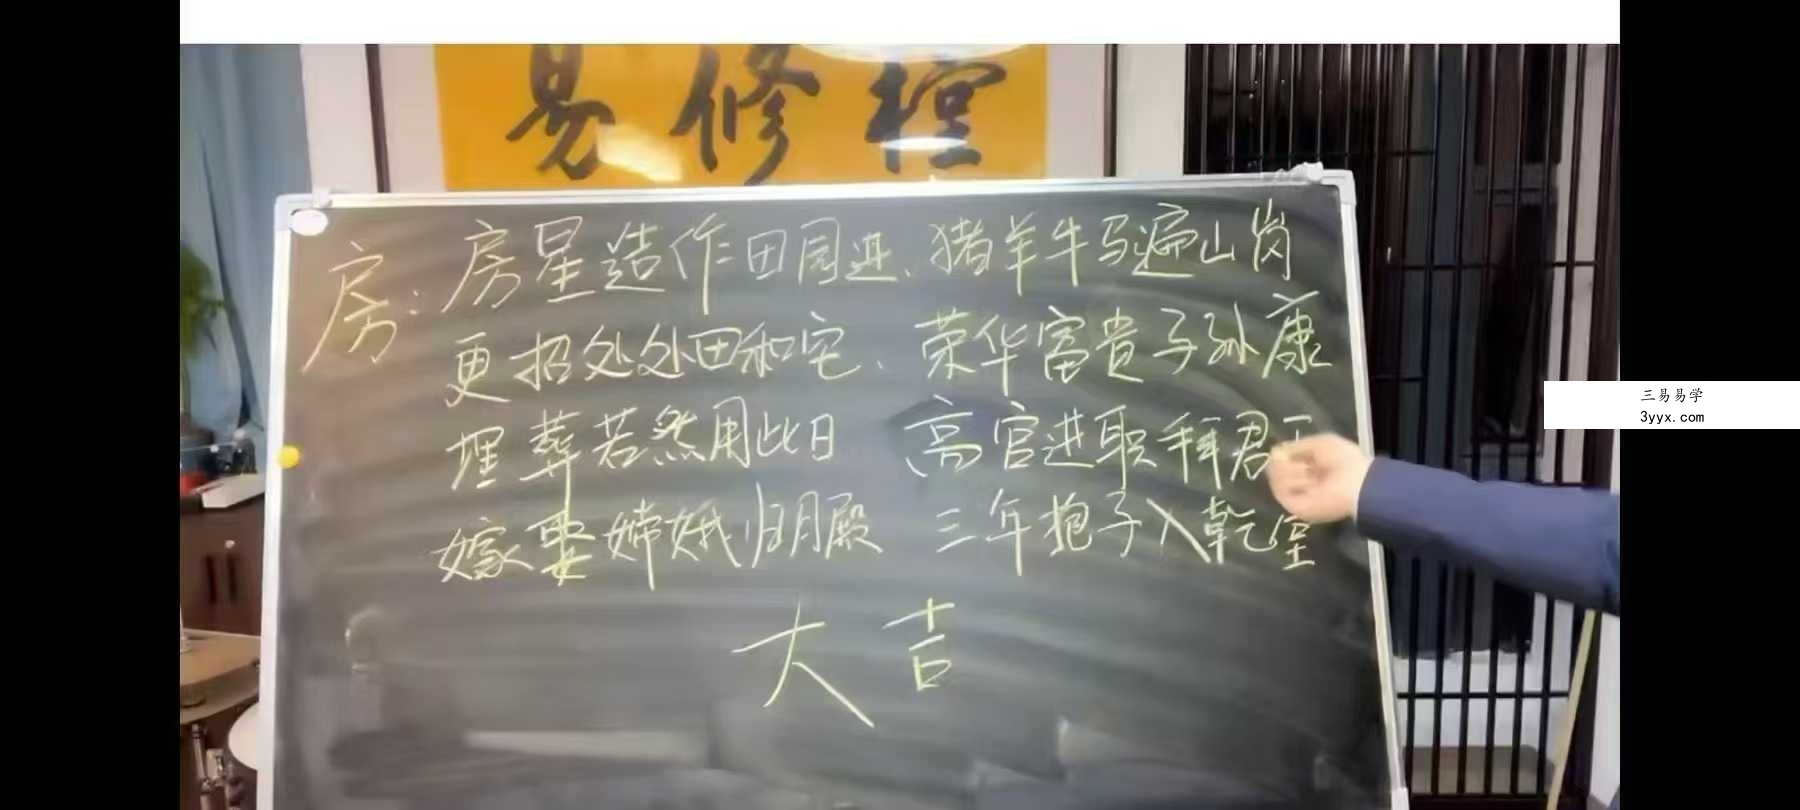 易修桓
房：房星造作田园进、猪羊牛马遍山岗
更招处处田和宅、荣华富贵子孙康
埋葬若然用此日 高官进职拜君王
嫁娶嫦娥归月殿 三年抱子入乾堂
大吉
三易易学
3yyx.com